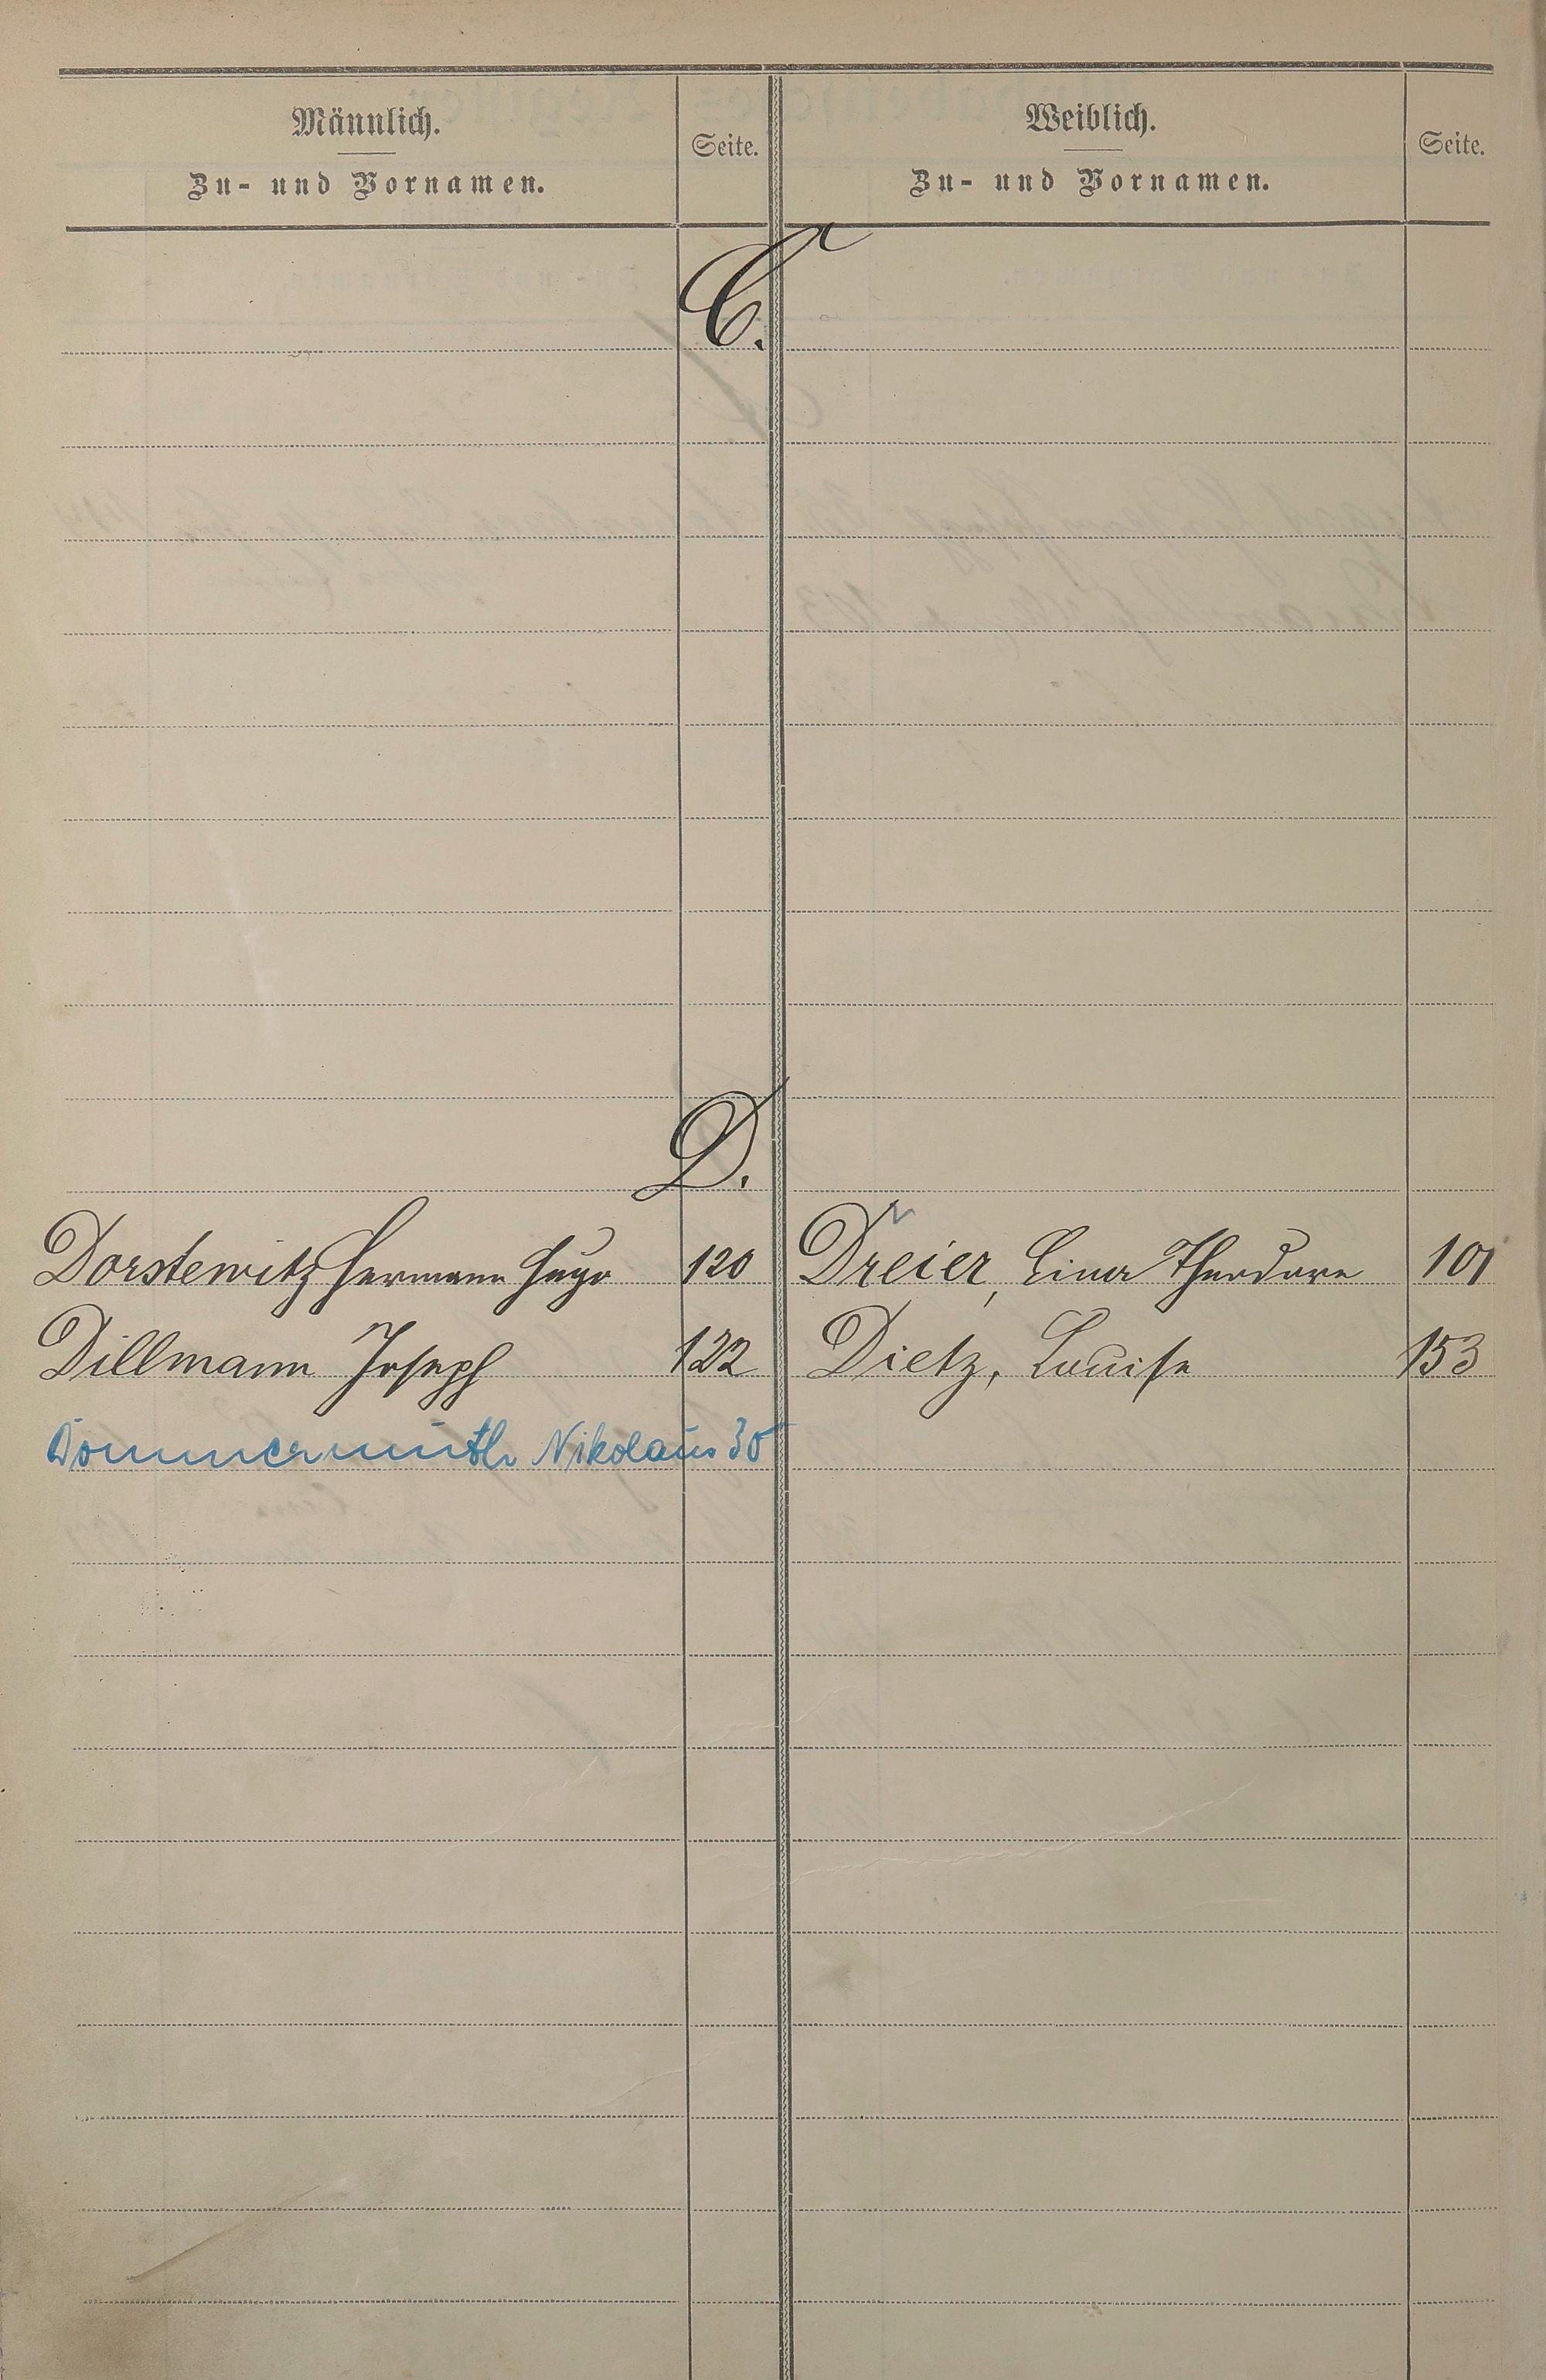 Männlich.
Zu- und Vornamen.
Seite.
Weiblich.
Zu- und Vornamen.
Seite.
C.
D.
Dorstewitz Hermann Hugo 120 Dreier, Lina Theodore 101
Dillmann Joseph 122 Dietz, Louise 153
Dommermuth Nikolaus 30